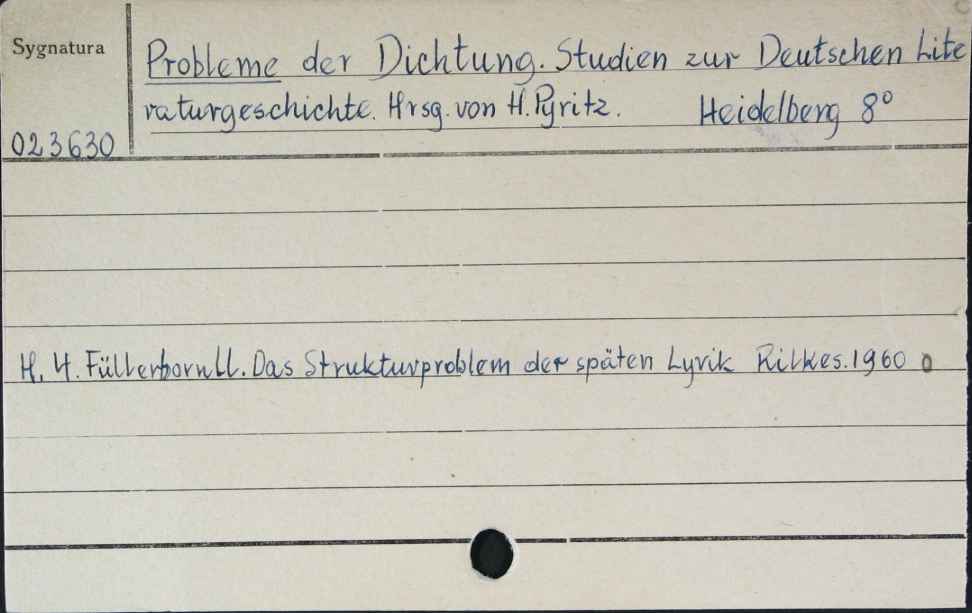 Sygnatura
Probleme der Dichtung. Studien zur Deutschen Lite
raturgeschichte. Hrsg. von H. Pyritz. Heidelberg 8°
023630
H. 4. Füllerborn U. Das Strukturproblem der späten Lyrik Rilkes. 1960